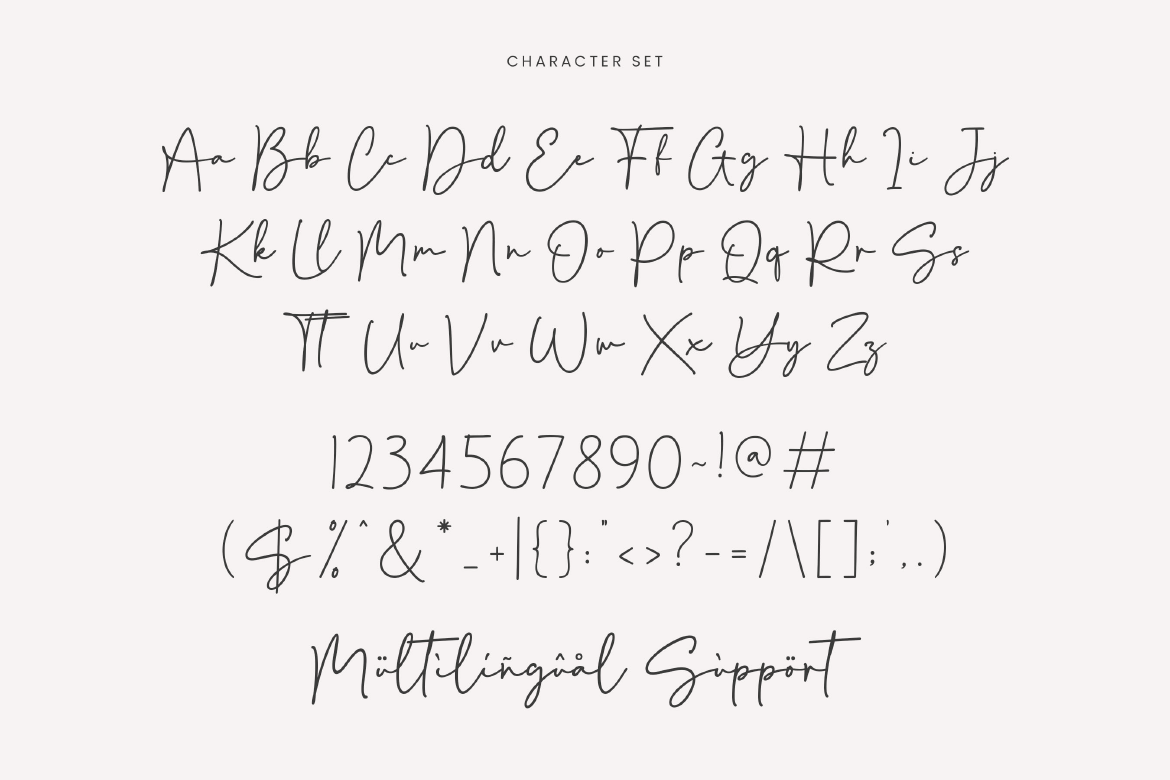 CHARACTER SET
Aa Bb Cc Dd Ee Ff Gg Hh Ii Jj
Kk Ll Mm Nn Oo Pp Qq Rr Ss
Tt Uu Vv Ww Xx Yy Zz
1234567890~!@#
($%^&*_+|{}:"<>?-=/\[];',.)
Mültìlíñgûål Sùppört